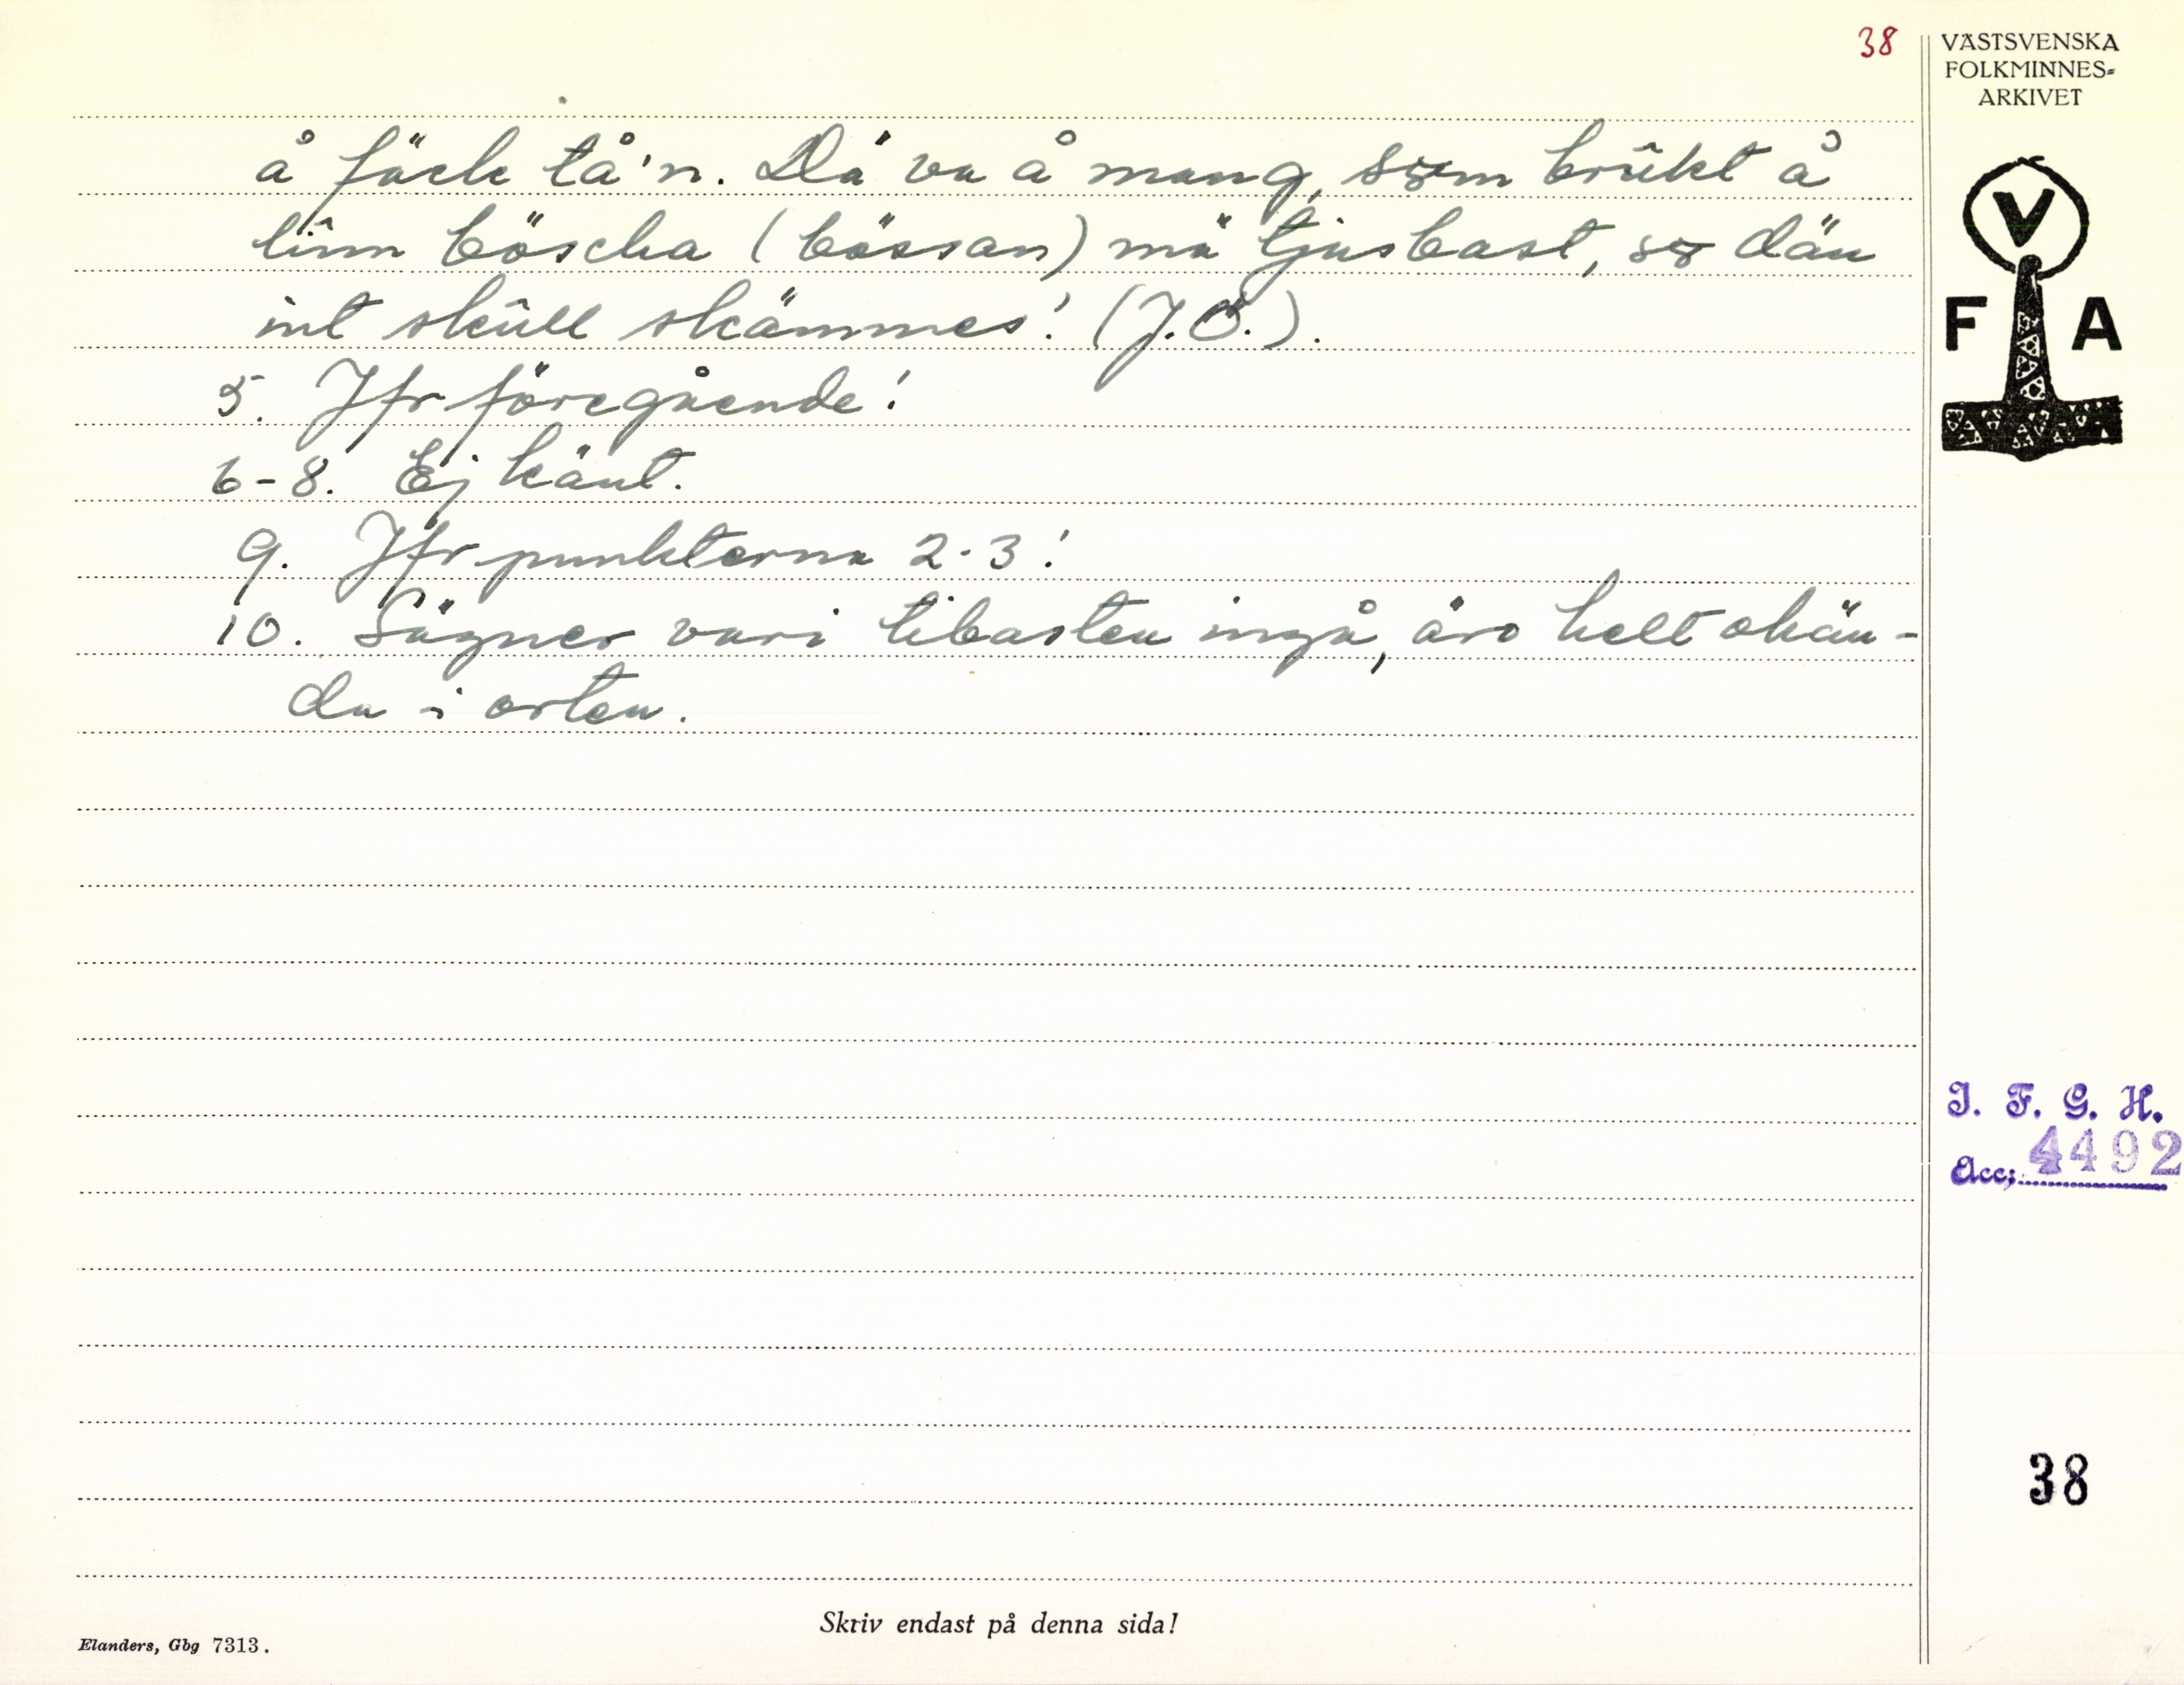 38
VÄSTSVENSKA
FOLKMINNES=
ARKIVET
å fäck tå'n. Dä va å mang, som brûkt å
lîm böscha (bössan) mä tjusbast, so dän
int skûll skämmes! (J.Ö.).
5. Jfr föregående!
6-8. Ej känt.
9. Jfr punkterna 2-3!
10. Sägner vari tibasten ingå, äro helt okän-
da i orten.
V
F A
I. F. G. H.
Acc; 4492
38
Skriv endast på denna sida!
Elanders, Gbg 7313.